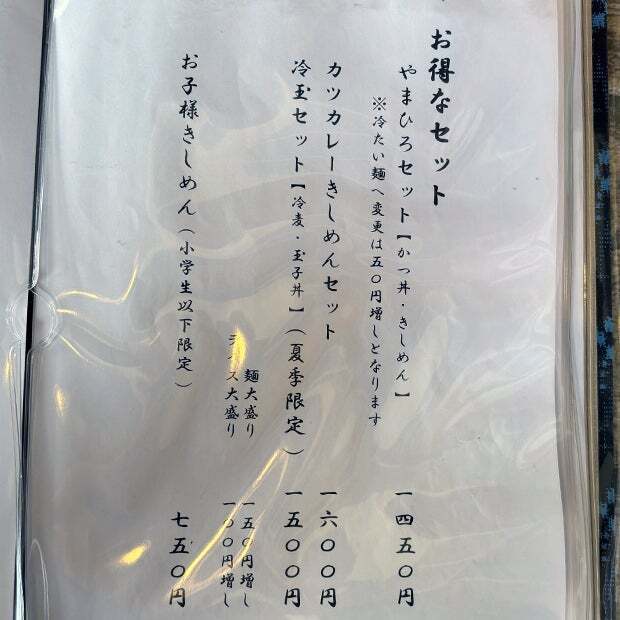 お得なセット
やまひろセット【かつ丼・きしめん】 一四五〇円
※冷たい麺へ変更は五〇円増しとなります
カツカレーきしめんセット 一六〇〇円
冷玉セット【冷麦・玉子丼】（夏季限定） 一五〇〇円
麺大盛り 一五〇円増し
大盛り 一〇〇円増し
お子様きしめん（小学生以下限定） 七五〇円